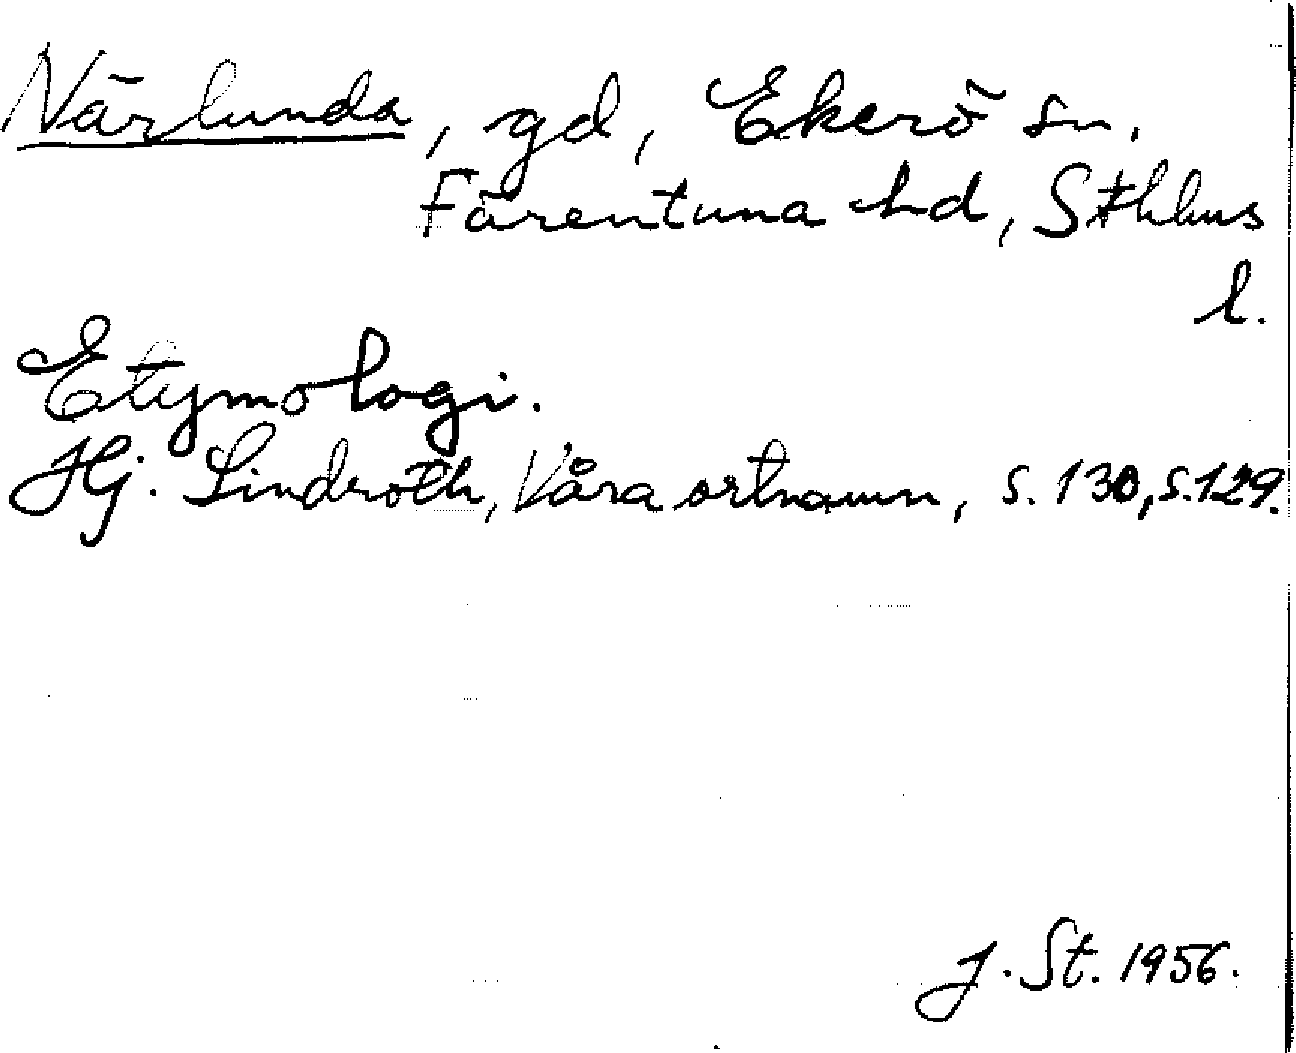 Närlunda, gd, Ekerö sn.
Färentuna hd, Sthlms
l.
Etymologi.
Hj. Lindroth, Våra ortnamn, s. 130, s. 129.
J. St. 1956.